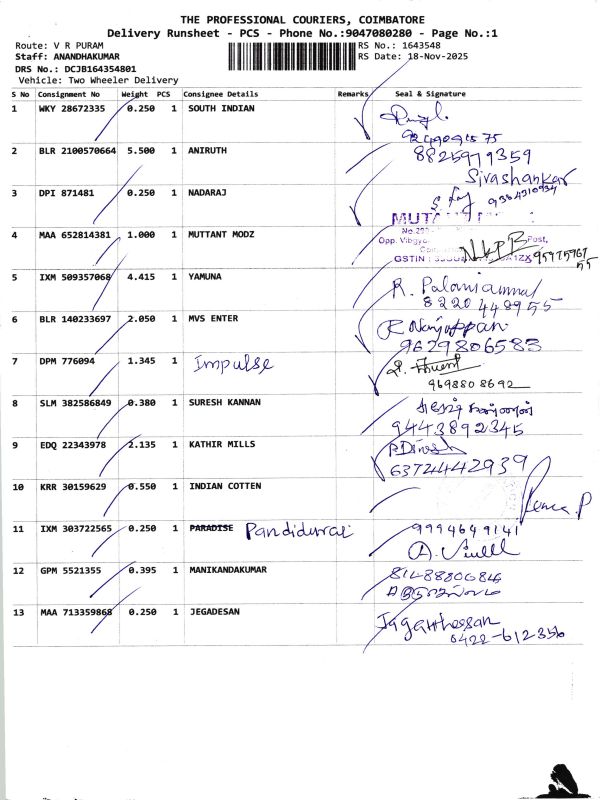 THE PROFESSIONAL COURIERS, COIMBATORE
Delivery Runsheet - PCS - Phone No.:9047080280 - Page No.:1
Route: V R PURAM
RS No.: 1643548
Staff: ANANDHAKUMAR
RS Date: 18-Nov-2025
DRS No.: DCJB164354801
Vehicle: Two Wheeler Delivery
S No Consignment No Weight PCS Consignee Details Remarks Seal & Signature
1 WKY 28672335 0.250 1 SOUTH INDIAN
2 BLR 2100570664 5.500 1 ANIRUTH 8825979359
Sivashankar
3 DPI 871481 0.250 1 NADARAJ
4 MAA 652814381 1.000 1 MUTTANT MODZ
Opp. Post,
GSTIN :
5 IXM 509357068 4.415 1 YAMUNA R. Palaniammal
8220448955
6 BLR 140233697 2.050 1 MVS ENTER R Nanjappan
9629806583
7 DPM 776094 1.345 1 Impulse
9698808692
8 SLM 382586849 0.380 1 SURESH KANNAN
9443892345
9 EDQ 22343978 2.135 1 KATHIR MILLS P Dinesh
6374442939
10 KRR 30159629 0.550 1 INDIAN COTTEN
11 IXM 303722565 0.250 1 PARADISE Pandidurai 9994649141
12 GPM 5521355 0.395 1 MANIKANDAKUMAR 8148880684
13 MAA 713359868 0.250 1 JEGADESAN Jaganthessan
0422-612356